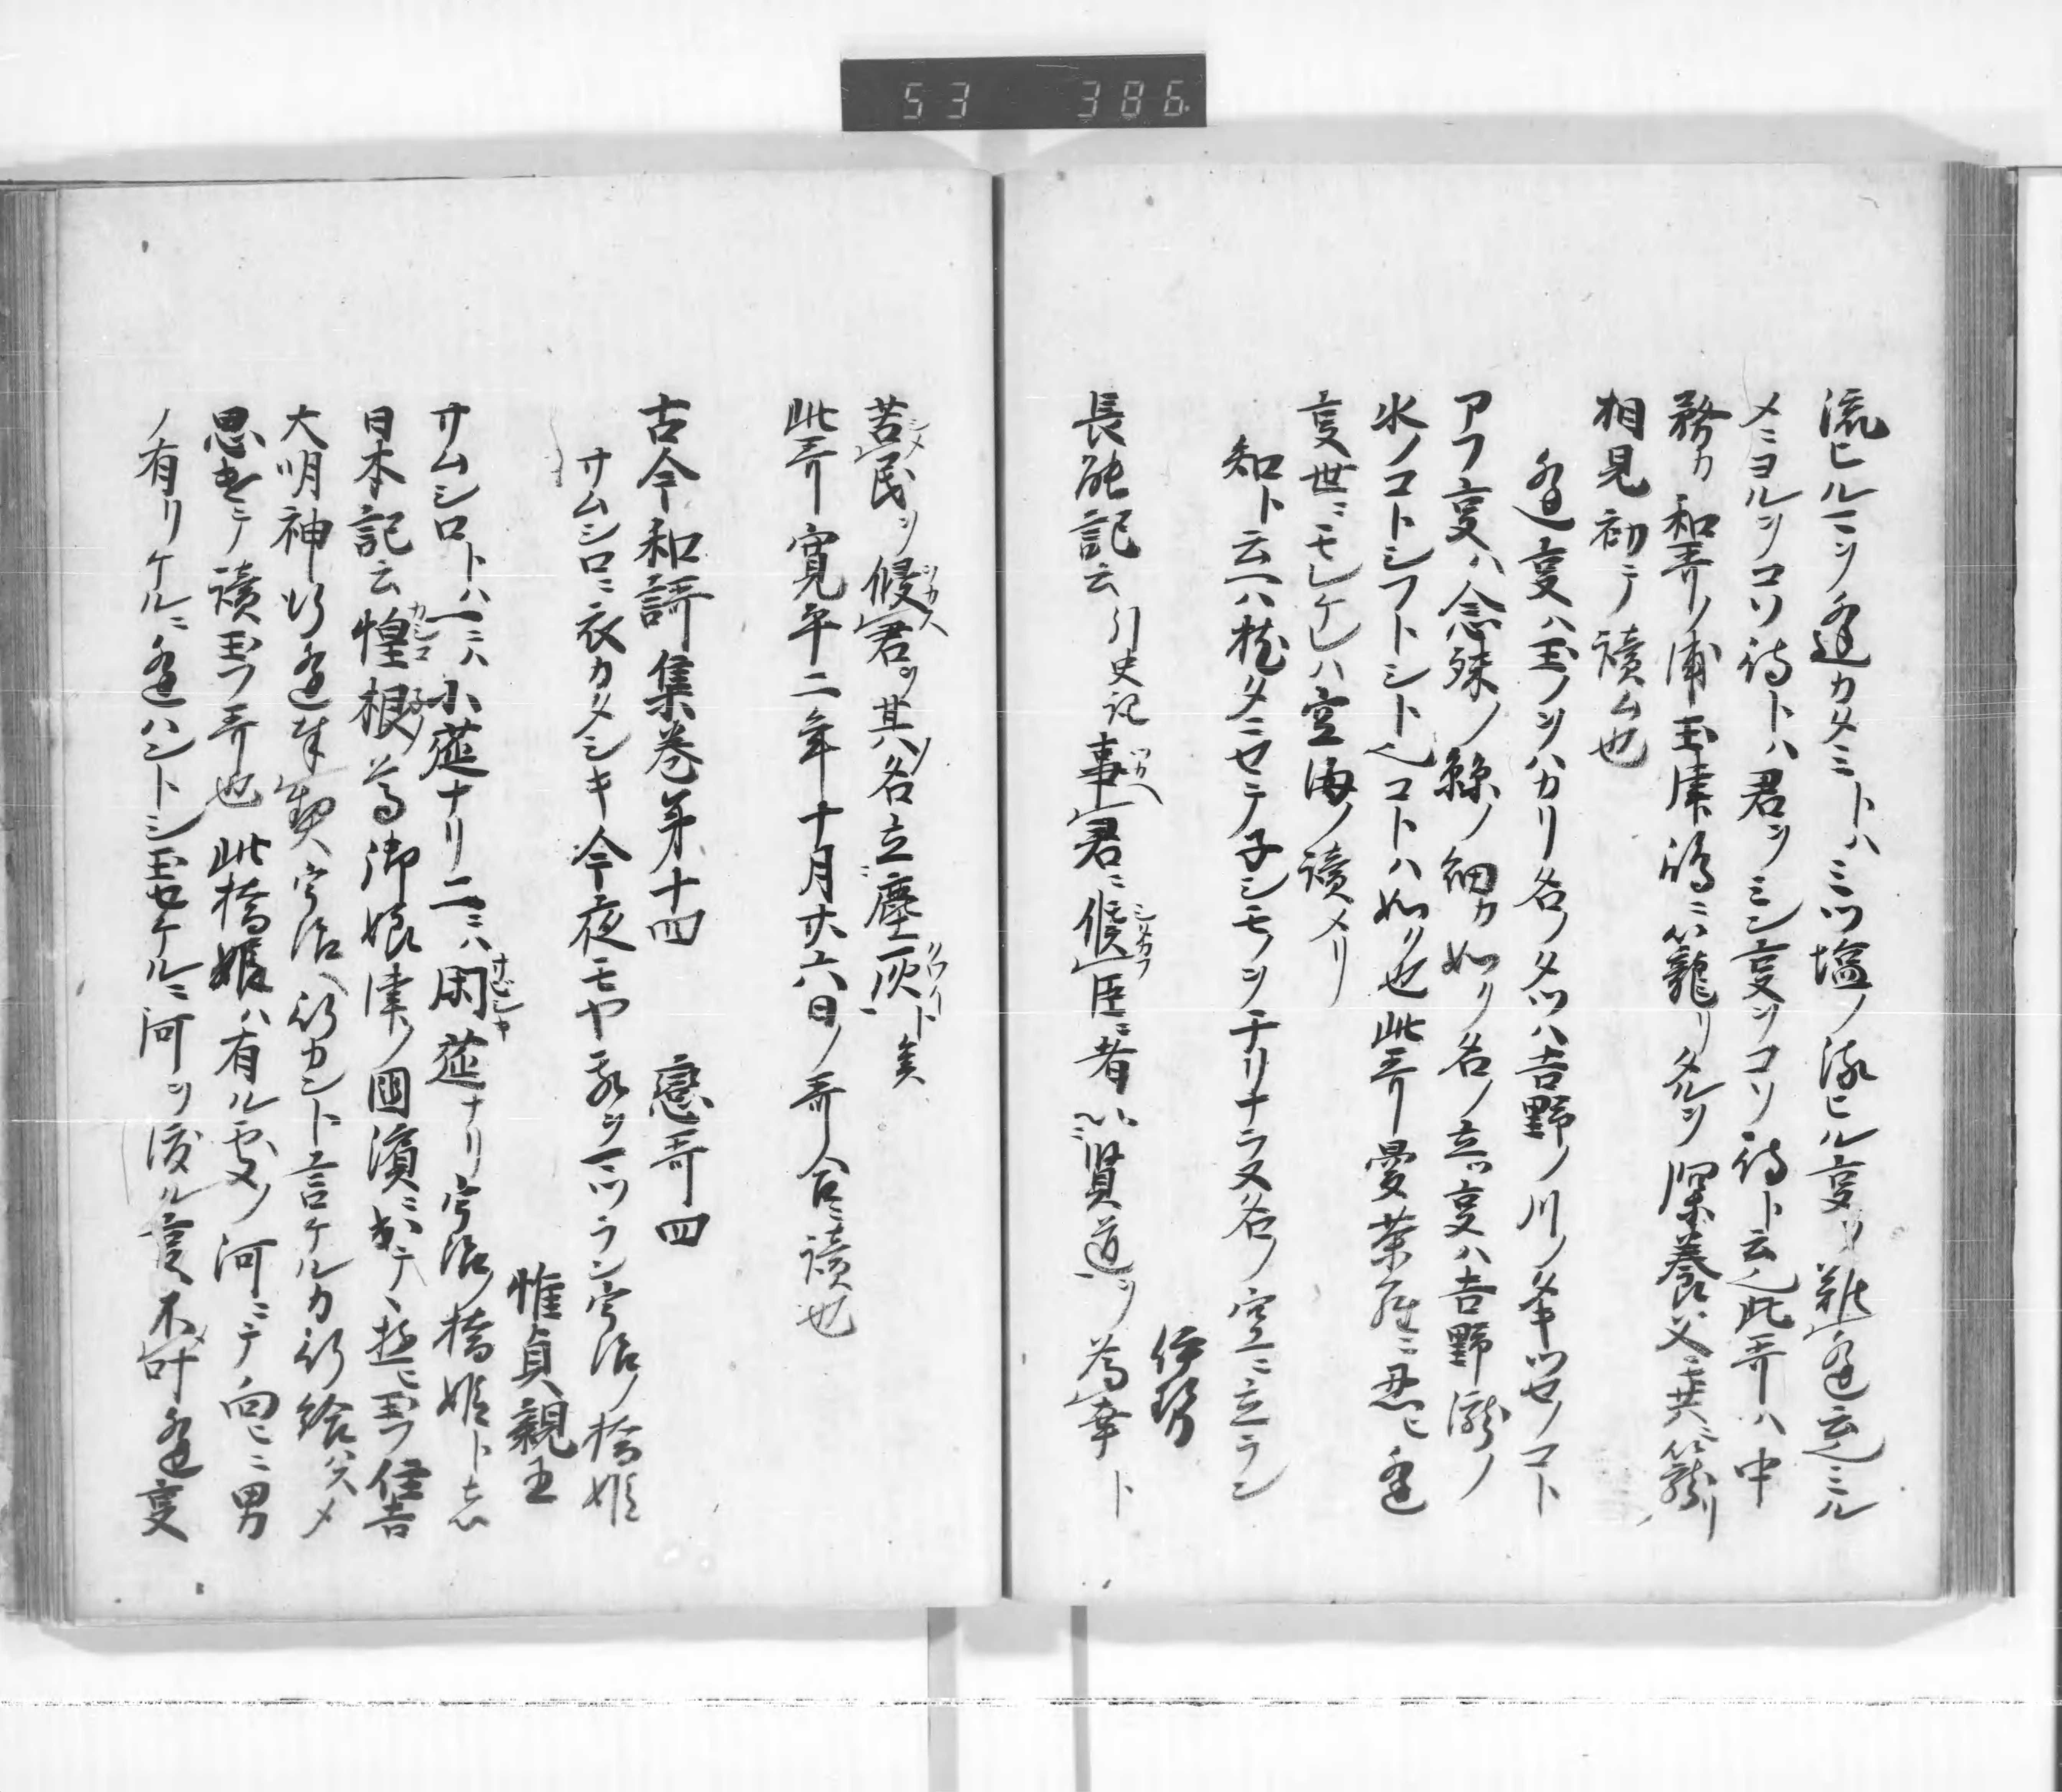 53 386
流ヒルマノ逢カタミトハミツ塩ノ流ヒル事ヲ難逢云也ミル
メニヨルヲコソ待トハ君ヲミン事ヲコソ待ト云也此哥ハ中
務カ和哥ノ浦玉津嶋ニ籠リタルヲ深養父モ共ニ籠リ
相見初テ讀ム也
逢事ハ玉ノヲハカリ名ノタツハ吉野ノ川ノタキツセノコト
アフ事ハ念殊ノ緜ノ細カ如ク名ノ立ツ事ハ吉野瀧ノ
水ノコトシフトシト也コトハ如ク也此哥愛葉ニ忍ヒ逢
事世ニモレケレハ空海ノ讀メリ
知ト云ハ枕タニセテ子シモノヲチリナラヌ名ノ空ニ立ラン
伊勢
長能記云引史記事君ニ候臣ニ者以賢道ヲ為幸ト
苦民ヲ候君ヲ其ノ名立塵灰ト矣
此哥寛平二年十月廿六日ノ哥合ニ讀也
古今和謌集巻第十四 戀哥四
サムシロニ衣カタシキ今夜モヤ我ヲマツラン宇治ノ橋姫
惟貞親王
サムシロトハ一ニハ小莚ナリ二ニハ閑莚ナリ宇治ノ橋姫ト
日本記云惶根ノ尊御娘津ノ國濱ニ出テ遊ヒ玉フ住吉
大明神行逢契宇治ヘ行カント言ケルカ行給ハス
思出テ讀玉フ哥也此橋姫ハ有ル處ノ河ニテ向ヒニ男
ノ有リケルニ逢ハントシ玉セケルニ河ヲ渡ル事不叶逢事